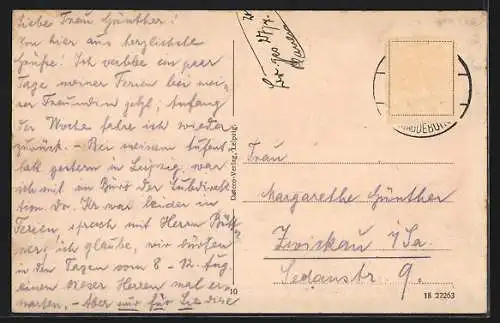 Liebe Frau Günther!
Von hier aus herzlichste
Grüße! Ich verlebe ein paar
Tage meiner Ferien bei mei-
ner Freundin hier; Anfang
der Woche fahre ich wieder
zurück. – Bei meinem Aufent-
halt gestern in Leipzig war
ich mit im Büro der Subdirek-
tion. Dr. war leider in
Ferien, sprach mit Herrn
ner; ich glaube, wir dürfen
in den Tagen vom 8 – 12. Aug.
einen dieser Herren mal er-
warten. – Aber nur für Sie diese
Dacco-Verlag, Leipzig.
10
Frau
Margarethe Günther
Zwickau i/Sa.
Sedanstr. 9.
18 27263